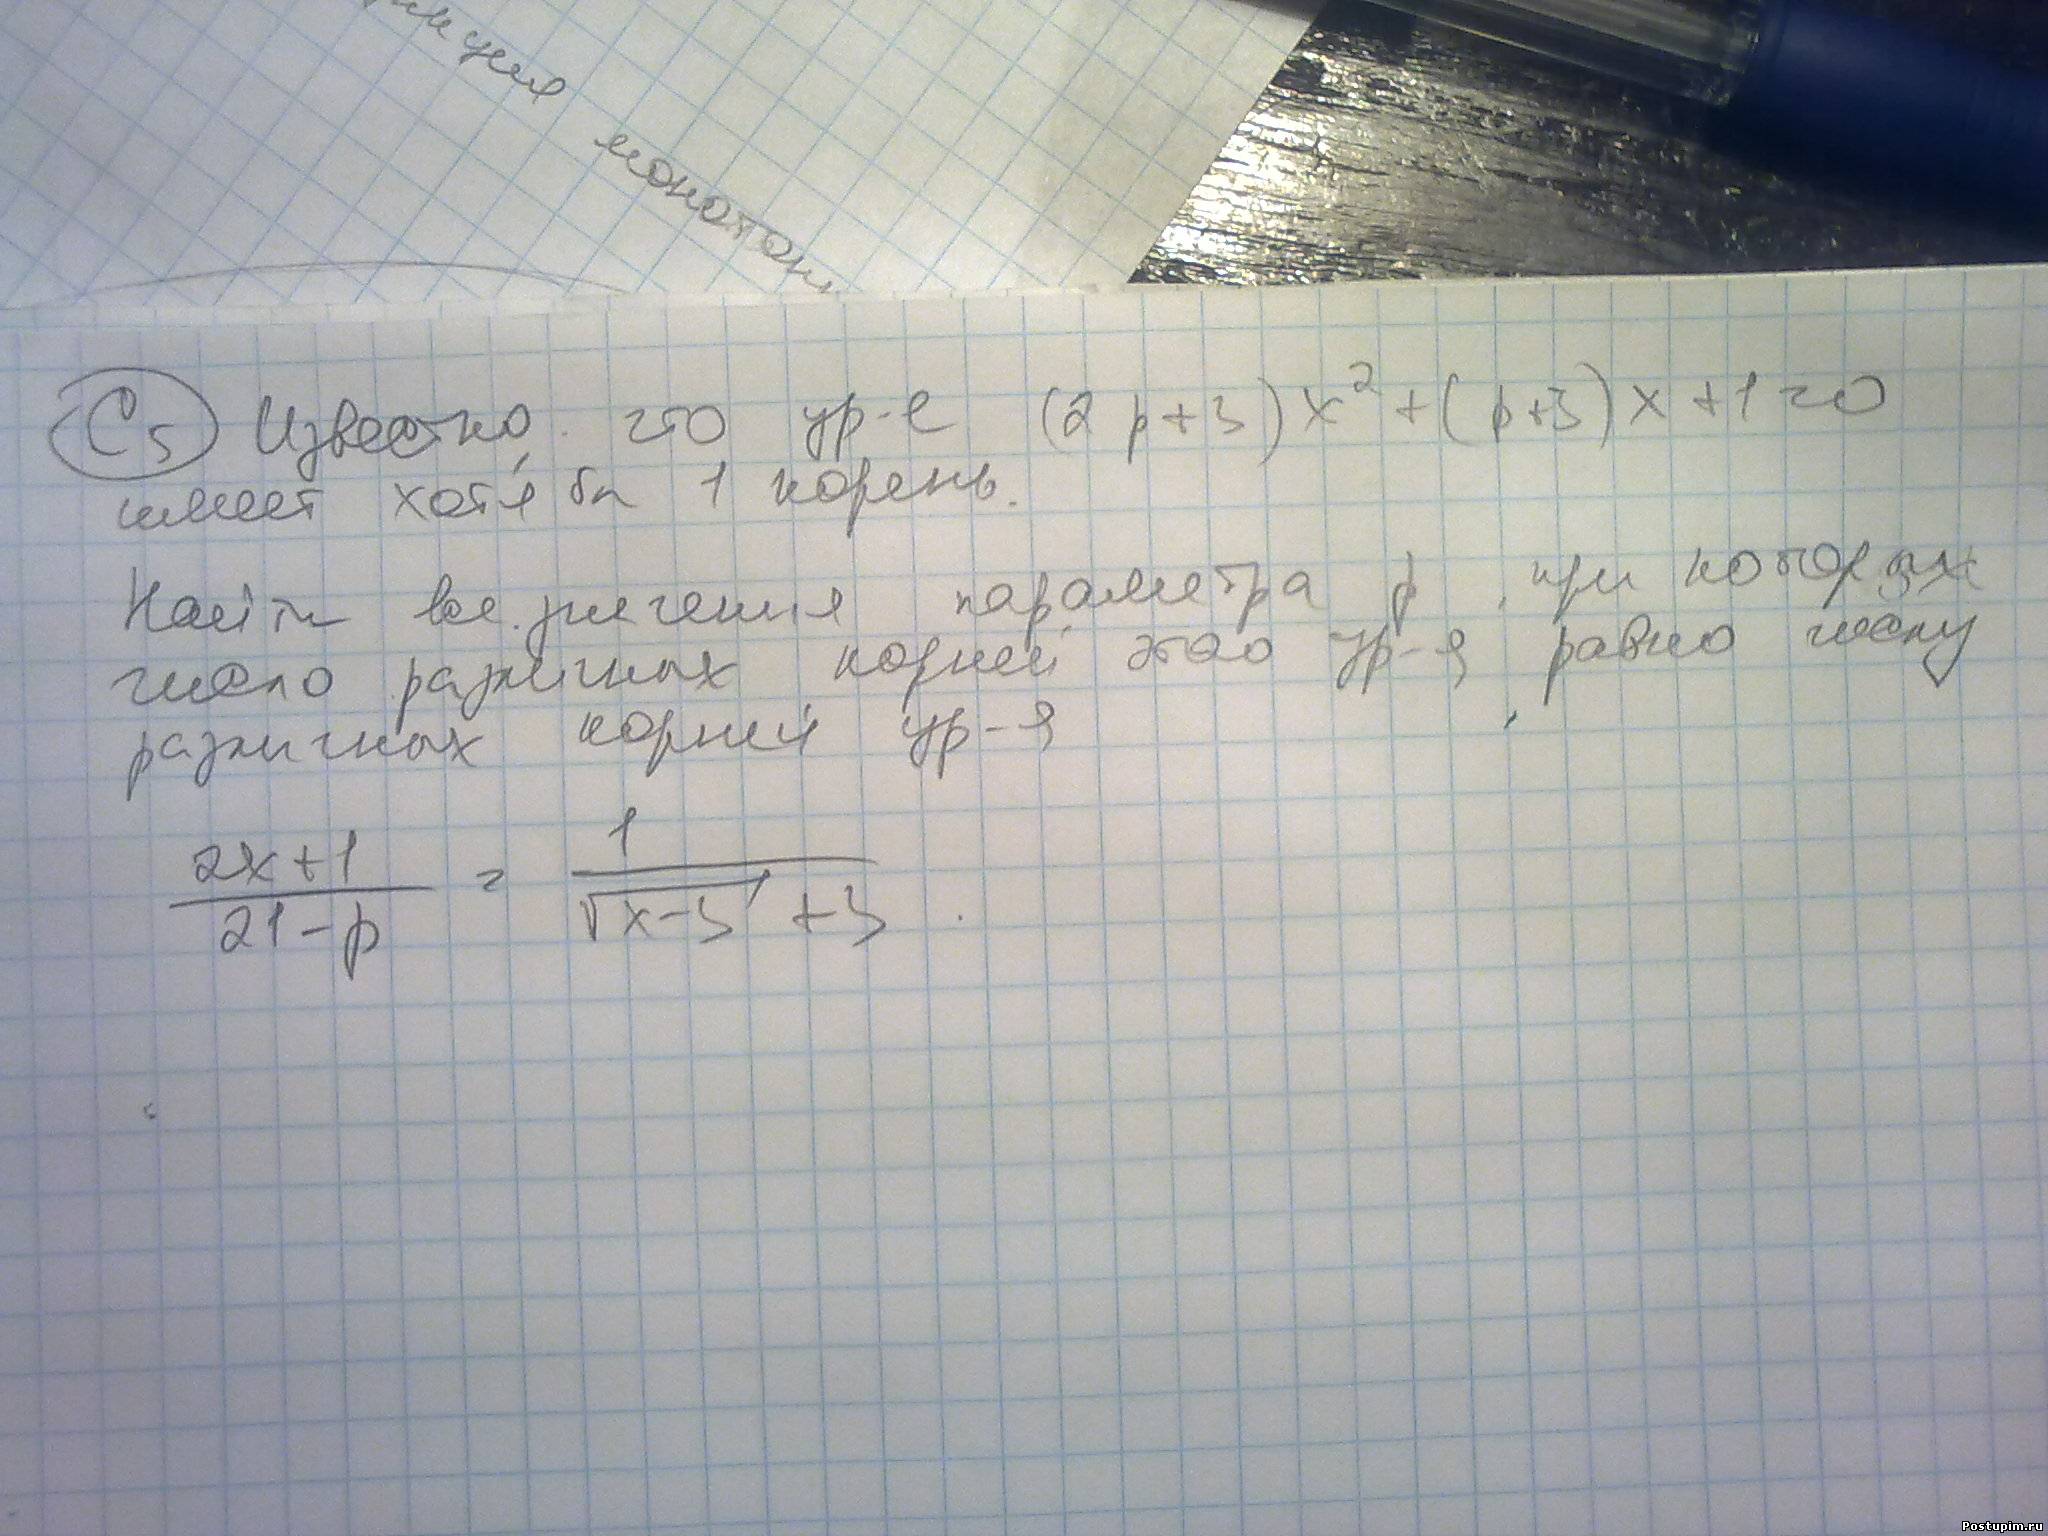 монотон
C5 Известно, что ур-е (2p+3)x²+(p+3)x+1=0
имеет хотя бы 1 корень.
Найти все значения параметра p, при которых
число различных корней этого ур-я равно числу
различных корней ур-я
(2x+1)/(21-p) = 1/(√(x-3)+3).
Postupim.ru